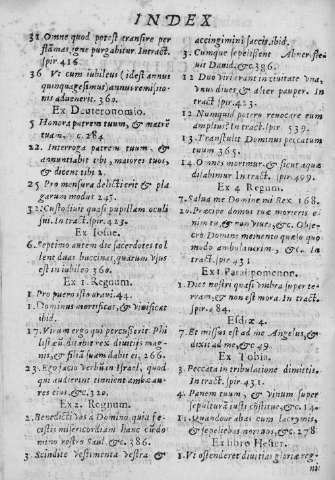 INDEX
31 Omne quod potest transire per
flãmas, igne purgabitur In tract.
spir 416.
36 Vt cum iubileus (idest annus
quinquagesimus) annus remissio-
nis aduenerit. 360.
Ex Deuteronomio.
5 Honora patrem tuum, & matrẽ
tuam, c. 284
22. Interroga patrem tuum, &
annuntiabit tibi, maiores tuos,
& dicent tibi
25 Pro mensura delicti erit & pla
garum modus 245.
32. Custodiuit quasi pupillam oculi
sui. In tract. spir. 423.
Ex Iosue.
6. Septimo autem die sacerdotes tol
lent duas buccinas, quarum vsus
est in iubileo 360.
Ex 1. Regnum.
1. Pro puero isto oraui. 44.
1. Dominus mortificat, & viuificat
ibid.
17. Virum ergo qui percusserit Phi
listæũ ditabit rex diuitijs mag-
nis, & filiã suam dabit ei, 266.
23. Ego facio verbũ in Israel, quod
qui audierit tinnient ambæ au-
res eius, &c. 320.
Ex 2. Regnum.
2. Benedicti vos à Domino, quia fe-
cistis misericordiam hanc cũ do-
mino nostro Saul. &c. 386.
3. Scindite vestimenta vestra &
accingimini saccis. ibid.
3. Cumque sepelissent Abner fle-
uit Dauid, &c. 386.
12 Duo viri erant in ciuitate vna,
vnus diues, & alter pauper. In
tract. spir. 423.
12 Numquid potero reuocare eum
amplius? In tract. spir. 539.
13. Transtulit Dominus peccatum
tuum 365.
14 Omnes morimur, & sicut aquæ
dilabimur In tract. spir. 499.
Ex 4 Regum.
7. Salua me Domine mi Rex. 168.
20. Præcipe domui tuæ morieris e-
nim tu, & non viues, &c. Obse-
cro Domine memento quæso quo
modo ambulauerim, &c. In
tract. spir. 431
Ex 1 Paralipomenon.
1. Dies nostri quasi vmbra super te-
rram, & non est mora. In tract.
spir. 484.
Esdræ 4.
7. Et missus est ad me Angelus, &
dixit ad me, &c 49.
Ex Tobia.
3. Peccata in tribulatione dimittis.
In tract. spir. 431.
4. Panem tuum, & vinum super
sepulturã iusti cõstitue, &c. 14.
12. Quando orabas cum lacrymis,
& sepeliebas mortuos, &c. 278
Ex libro Hester.
1. Vt ostenderet diuitias gloriæ reg-
ni